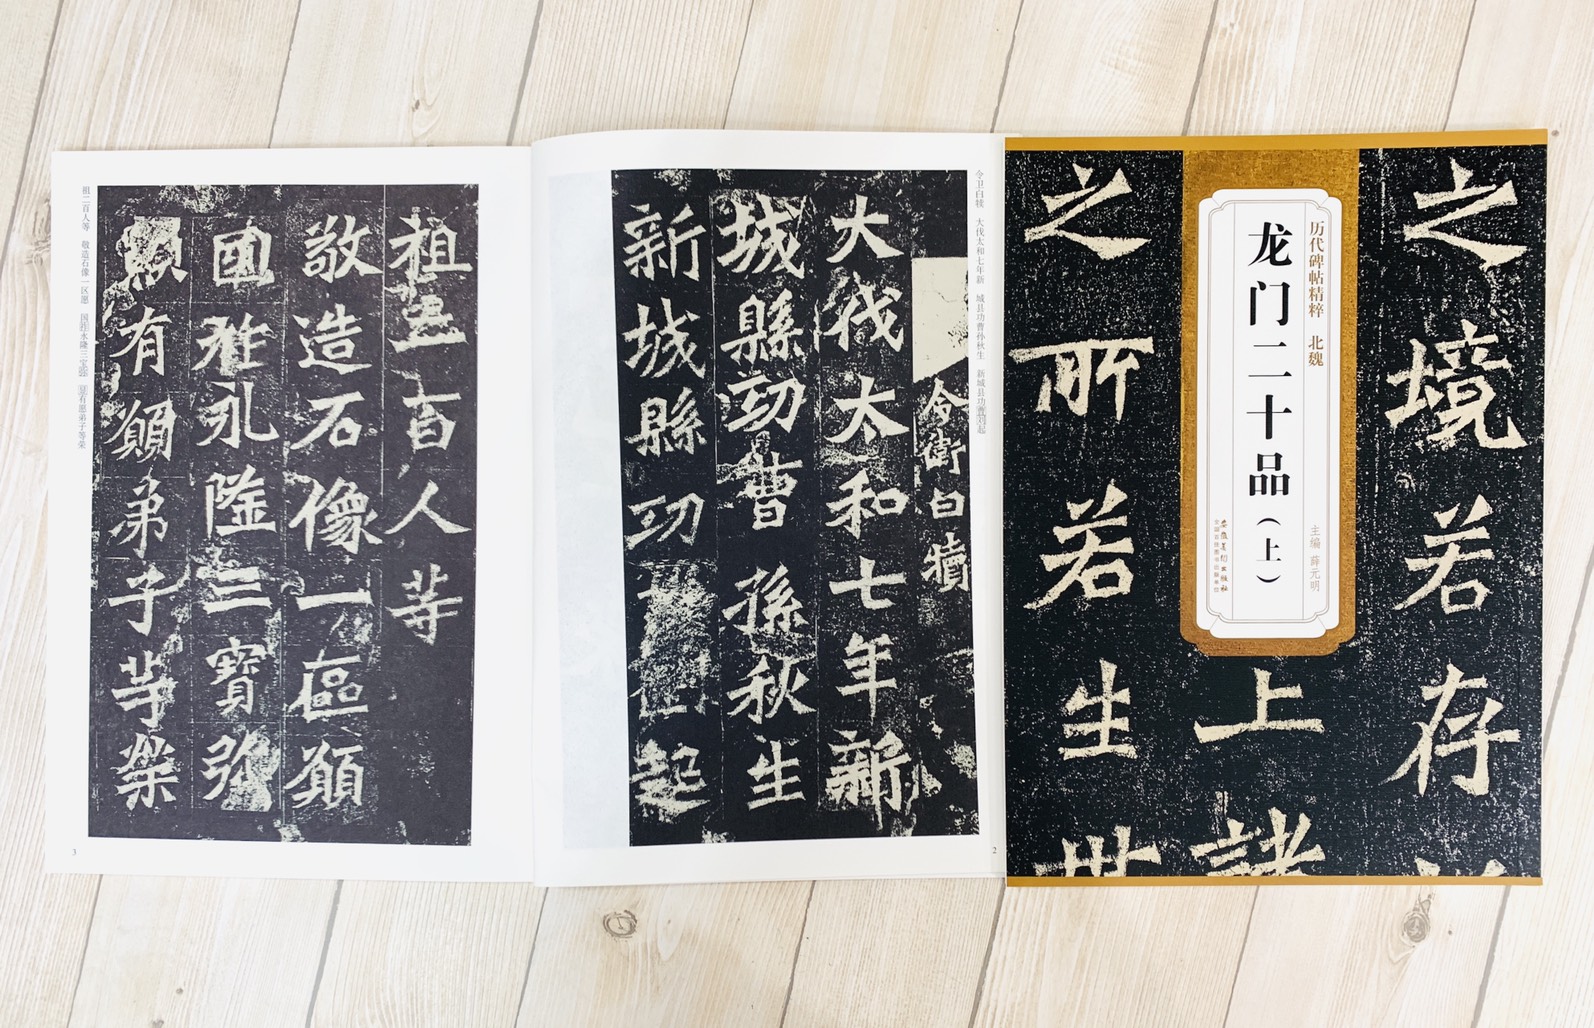 历代碑帖精粹 北魏
龙门二十品(上)
主编 薛元明
安徽美术出版社
之境若存
上諸
之所若生世
令卫白犊 大伐太和七年新 城县功曹孙秋生 新城县功曹刘起
令衛白犢
大伐太和七年新
城縣功曹孫秋生
新城縣功起
2
祖二百人等 敬造石像一区愿 国祚永隆三宝弥 显有愿弟子等荣
祖二百人等
敬造石像一區願
國祚永隆三寶弥
顯有願弟子等榮
3